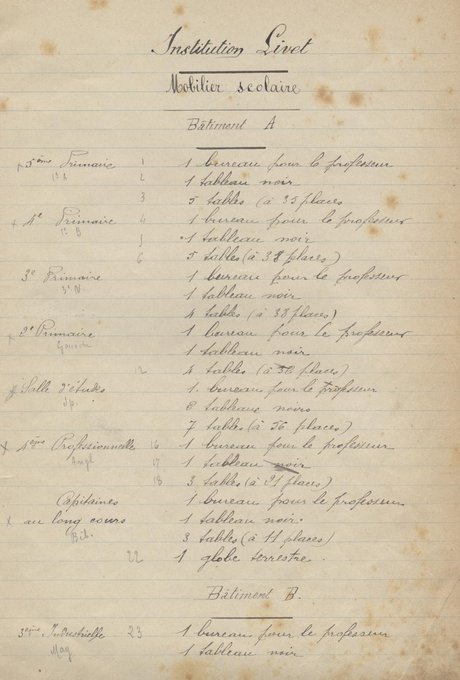 Institution Livet
Mobilier scolaire
Bâtiment A
x 5ème Primaire 1 1 bureau pour le professeur
1e A 2 1 tableau noir
3 5 tables (à 35 places
x 4e Primaire 4 1 bureau pour le professeur
1e B 5 1 tableau noir
6 5 tables (à 38 places)
3e Primaire 1 bureau pour le professeur
3e N 1 tableau noir
4 tables (à 38 places)
x 2e Primaire 1 bureau pour le professeur
Gauche 1 tableau noir
12 4 tables (à 36 places)
x Salle d'études 1 bureau pour le professeur
Sp. 6 tableaux noirs
7 tables (à 56 places)
x 4ème Professionnelle 16 1 bureau pour le professeur
Angl 17 1 tableau noir
18 3 tables (à 21 places)
Capitaines 1 bureau pour le professeur
x au long cours 1 tableau noir.
Bib. 3 tables (à 11 places)
22 1 globe terrestre.
Bâtiment B.
3ème Industrielle 23 1 bureau pour le professeur
Mag 1 tableau noir